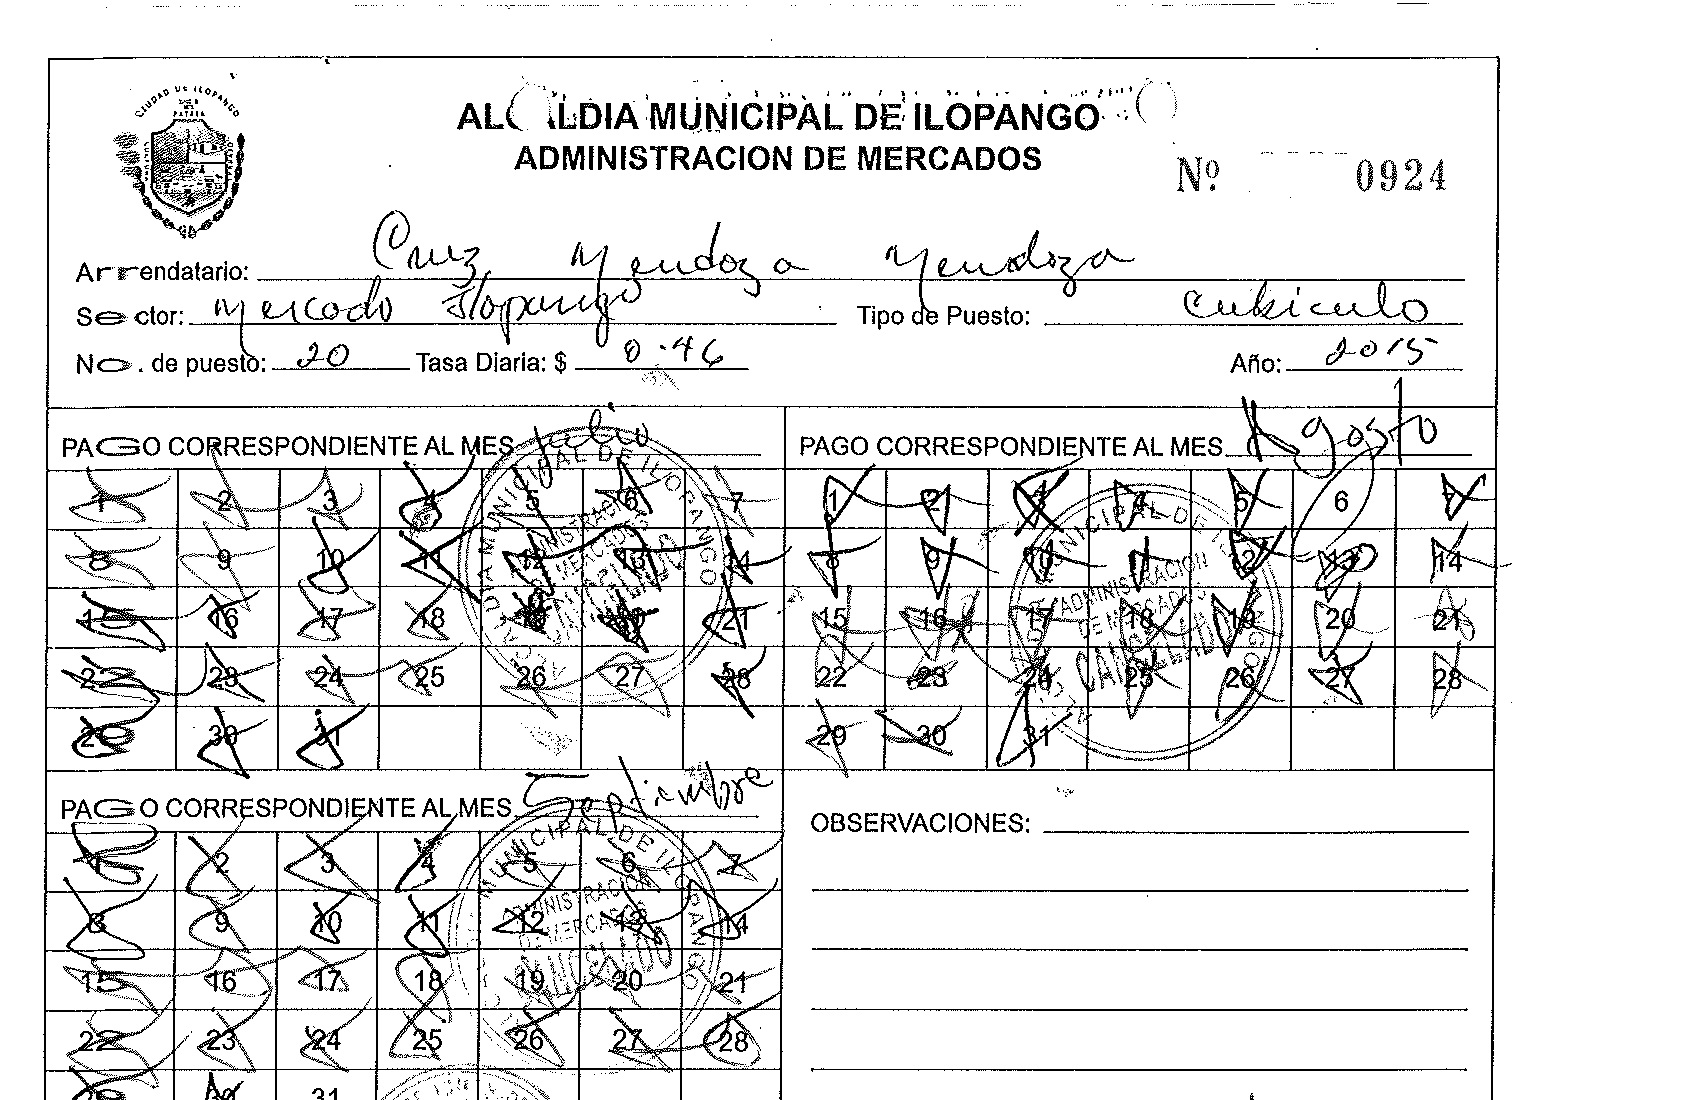 CIUDAD DE ILOPANGO
ALCALDIA MUNICIPAL DE ILOPANGO
ADMINISTRACION DE MERCADOS
Nº 0924
Arrendatario: Cruz Mendoza Mendoza
Sector: Mercado Ilopango Tipo de Puesto: Cubiculo
No. de puesto: 20 Tasa Diaria: $ 0.46 Año: 2015
PAGO CORRESPONDIENTE AL MES Julio
1 2 3 4 5 6 7
8 9 10 11 12 13 14
15 16 17 18 19 20 21
22 23 24 25 26 27 28
29 30 31
MUNICIPAL DE ILOPANGO
ADMINISTRACION
DE MERCADOS
CANCELADO
PAGO CORRESPONDIENTE AL MES Agosto
1 2 3 4 5 6 7
8 9 10 11 12 13 14
15 16 17 18 19 20 21
22 23 24 25 26 27 28
29 30 31
MUNICIPAL DE
ADMINISTRACION
DE MERCADOS
CANCELADO
PAGO CORRESPONDIENTE AL MES Septiembre
1 2 3 4 5 6 7
8 9 10 11 12 13 14
15 16 17 18 19 20 21
22 23 24 25 26 27 28
29 30 31
MUNICIPAL DE ILOPANGO
ADMINISTRACION
DE MERCADOS
CANCELADO
OBSERVACIONES: